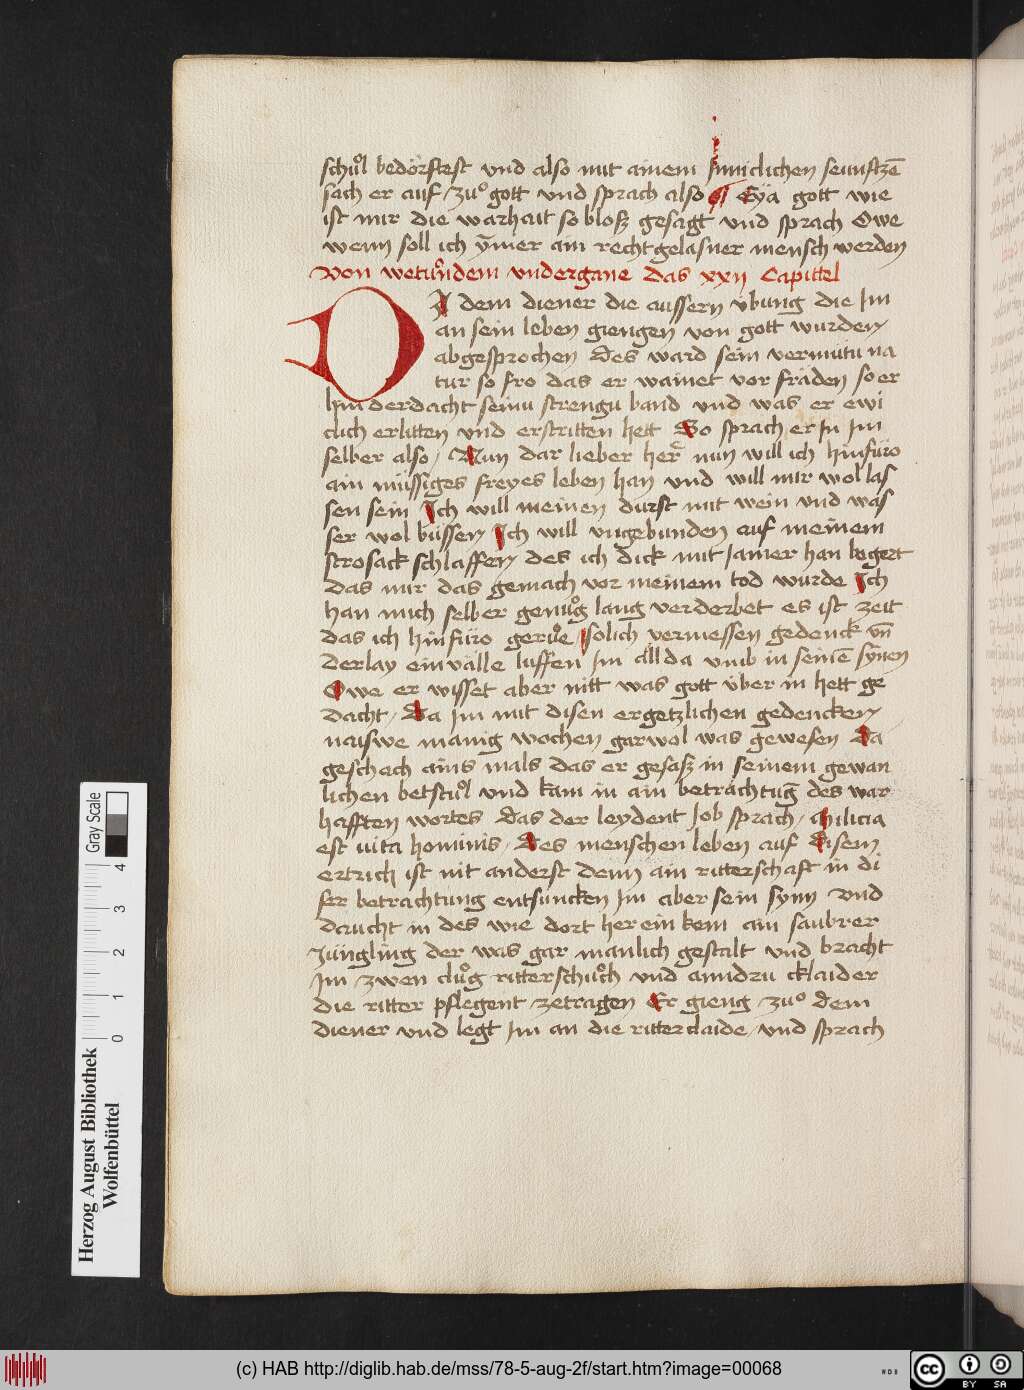 schuͦl bedörftest vnd also mit ainem jnniclichen seunftzē
sach er auf zuͦ gott vnd sprach also Eya gott wie
ist mir die warhait so blosz gesagt vnd sprach Owe
wenn soll ich ymer ain recht gelasner mensch werden
Von wetuͦndem vndergane das xxij Capittel
DA dem diener die aussern übung die Jm
an sein leben giengen von gott wurden
abgesprochen Des ward sein vermütu na
tur so fro das er wainet vor fräden so er
hinderdacht seinu strengu band vnd was er ewi
clich erlitten vnd erstritten hett So sprach er Jn Jm
selber also / Nun dar lieber her nun will ich hinfüro
ain müssiges freyes leben han vnd will mir wol las
sen sein Ich will meinen durst mit wein vnd was
ser wol büssen Ich will vngebunden auf meinem
strosack schlaffen des ich dick mit Jamer han begert
das mir das gemach vor meinem tod wurde Ich
han mich selber genuͦg lang verderbet es ist zeit
das ich hinfüro geruͦe solich vermessen gedenck vn̄
derlay einvälle luffen Jm all da vmb in seinē synen
Owe er wisset aber nitt was gott über in hett ge
dacht / Da Jm mit disen ergetzlichen gedencken
nauswe manig wochen gar wol was gewesen Da
geschach ains mals das er gesasz in seinem gewan
lichen betstuͦl vnd kam in ain betrachtug des war
hafften wortes das der leydent Job sprach / Milicia
est uita hominis / Des menschen leben auf disem
ertrich ist nit anderst denn ain ritterschaft in di
ser betrachtung entsuncken Jm aber sein synn vnd
daucht in des wie dort her ein kem ain saubrer
Jüngling der was gar manlich gestalt vnd bracht
Jm zwen cluͦg ritterschuͦch vnd annidru cklaider
die ritter pflegent zetragen Er gieng zuͦ dem
diener vnd legt Jm an die ritterclaide / vnd sprach
Herzog August Bibliothek
Wolfenbüttel
Gray Scale
0 1 2 3 4
(c) HAB http://diglib.hab.de/mss/78-5-aug-2f/start.htm?image=00068
cc BY SA